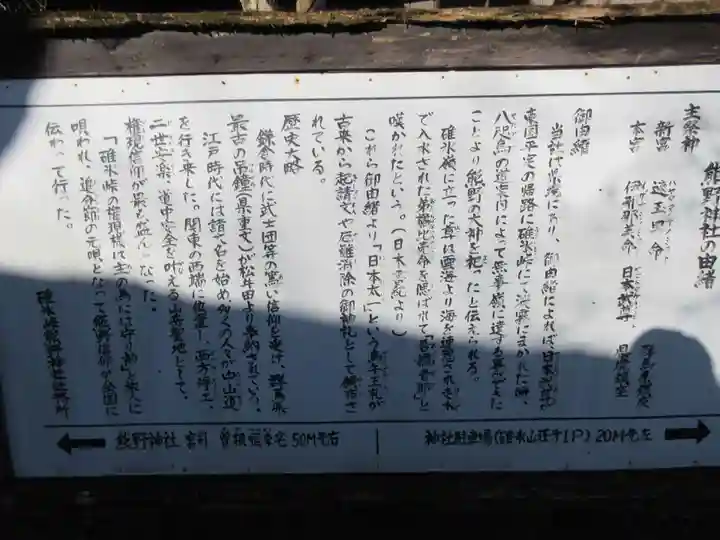 熊野神社の由緒
主祭神
新宮 速玉男命
本宮 伊邪那美命 日本武尊
御由緒
当社は県境にあり、御由緒によれば日本武尊が
東国平定の帰路に碓氷峠にて濃霧にまかれた時、
八咫烏の道案内によって無事嶺に達する事ができた
ことより熊野の大神を祀ったと伝えられる。
碓氷嶺に立った尊は雲海より海を連想され
で入水された弟橘比売命を偲ばれて「吾嬬者耶」と
嘆かれたという。(日本書紀より)
これら御由緒より「日本太一」という烏牛王札が
古来から起請文や厄難消除の御神札として頒布さ
れている。
歴史大略
鎌倉時代に武士団等の篤い信仰を受け、群馬県
最古の吊鐘(県重文)が松井田より奉納されている。
江戸時代には諸大名を始め多くの人々が中山道
を行き来した。関東の西端に位置し、西方浄土、
二世安楽、道中安全を叶える山岳聖地として、
権現信仰が最も盛んになった。
「碓氷峠の権現様は主の為には守り神」と旅人に
唄われ、追分節の元唄となって熊野信仰が全国に
伝わって行った。
碓氷峠熊野神社社務所
神社駐車場 20M先左
熊野神社 宮司 曽根 宅 50M先右